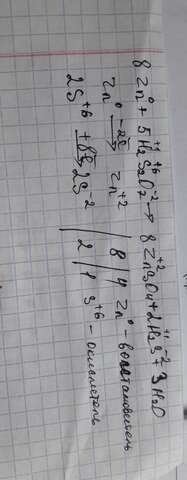 8 Zn⁰ + 5H₂⁺¹S₂⁺⁶O₇⁻² → 8Zn⁺²SO₄ + 2H₂⁺¹S⁻² + 3H₂O
Zn⁰ –2ē→ Zn⁺² | 8 | 4 Zn⁰ – восстановитель
2S⁺⁶ +8·2ē→ 2S⁻² | 2 | 1 S⁺⁶ – окислитель